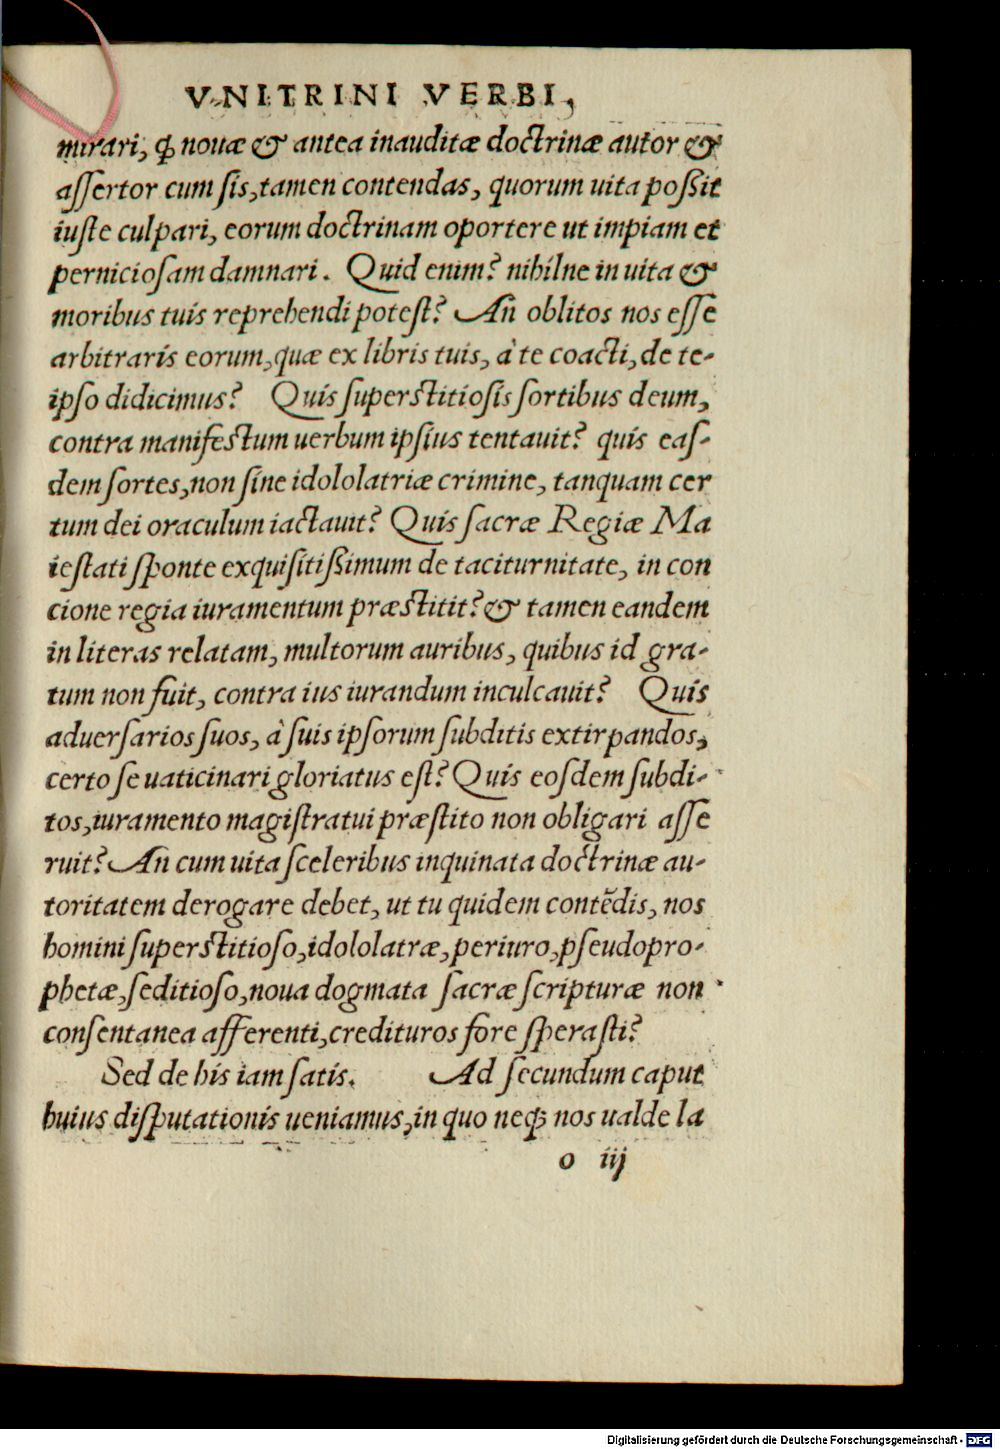 VNITRINI VERBI,
mirari, ꝙ nouæ & antea inauditæ doctrinæ autor &
aſſertor cum ſis, tamen contendas, quorum uita poßit
iuſte culpari, eorum doctrinam oportere ut impiam et
pernicioſam damnari. Quid enim? nihilne in uita &
moribus tuis reprehendi poteſt? An oblitos nos eſſe
arbitraris eorum, quæ ex libris tuis, à te coacti, de te-
ipſo didicimus? Quis ſuperſtitioſis ſortibus deum,
contra manifeſtum uerbum ipſius tentauit? quis eaſ-
dem ſortes, non ſine idololatriæ crimine, tanquam cer
tum dei oraculum iactauit? Quis ſacræ Regiæ Ma
ieſtati ſponte exquiſitißimum de taciturnitate, in con
cione regia iuramentum præſtitit? & tamen eandem
in literas relatam, multorum auribus, quibus id gra-
tum non fuit, contra ius iurandum inculcauit? Quis
aduerſarios ſuos, à ſuis ipſorum ſubditis extirpandos,
certo ſe uaticinari gloriatus eſt? Quis eoſdem ſubdi-
tos, iuramento magiſtratui præſtito non obligari aſſe
ruit? An cum uita ſceleribus inquinata doctrinæ au-
toritatem derogare debet, ut tu quidem contẽdis, nos
homini ſuperſtitioſo, idololatræ, periuro, pſeudopro-
phetæ, ſeditioſo, noua dogmata ſacræ ſcripturæ non
conſentanea afferenti, credituros fore ſperaſti?
Sed de his iam ſatis. Ad ſecundum caput
huius diſputationis ueniamus, in quo neqꝫ nos ualde la
o iij
Digitalisierung gefördert durch die Deutsche Forschungsgemeinschaft - DFG